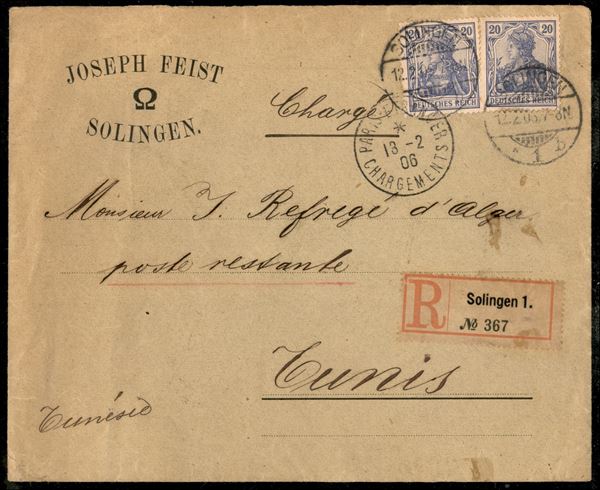 JOSEPH FEIST
Ω
SOLINGEN.
20 20
DEUTSCHES REICH
DEUTSCHES REICH
SOLINGEN
12.2.
SOLINGEN
12.2.06.7-8N
* 1 b
Chargé
PARIS
*
13 -2
06
CHARGEMENTS
Monsieur J. Refregé d'Alger
poste restante
R
Solingen 1.
№ 367
Tunis
Tunésie